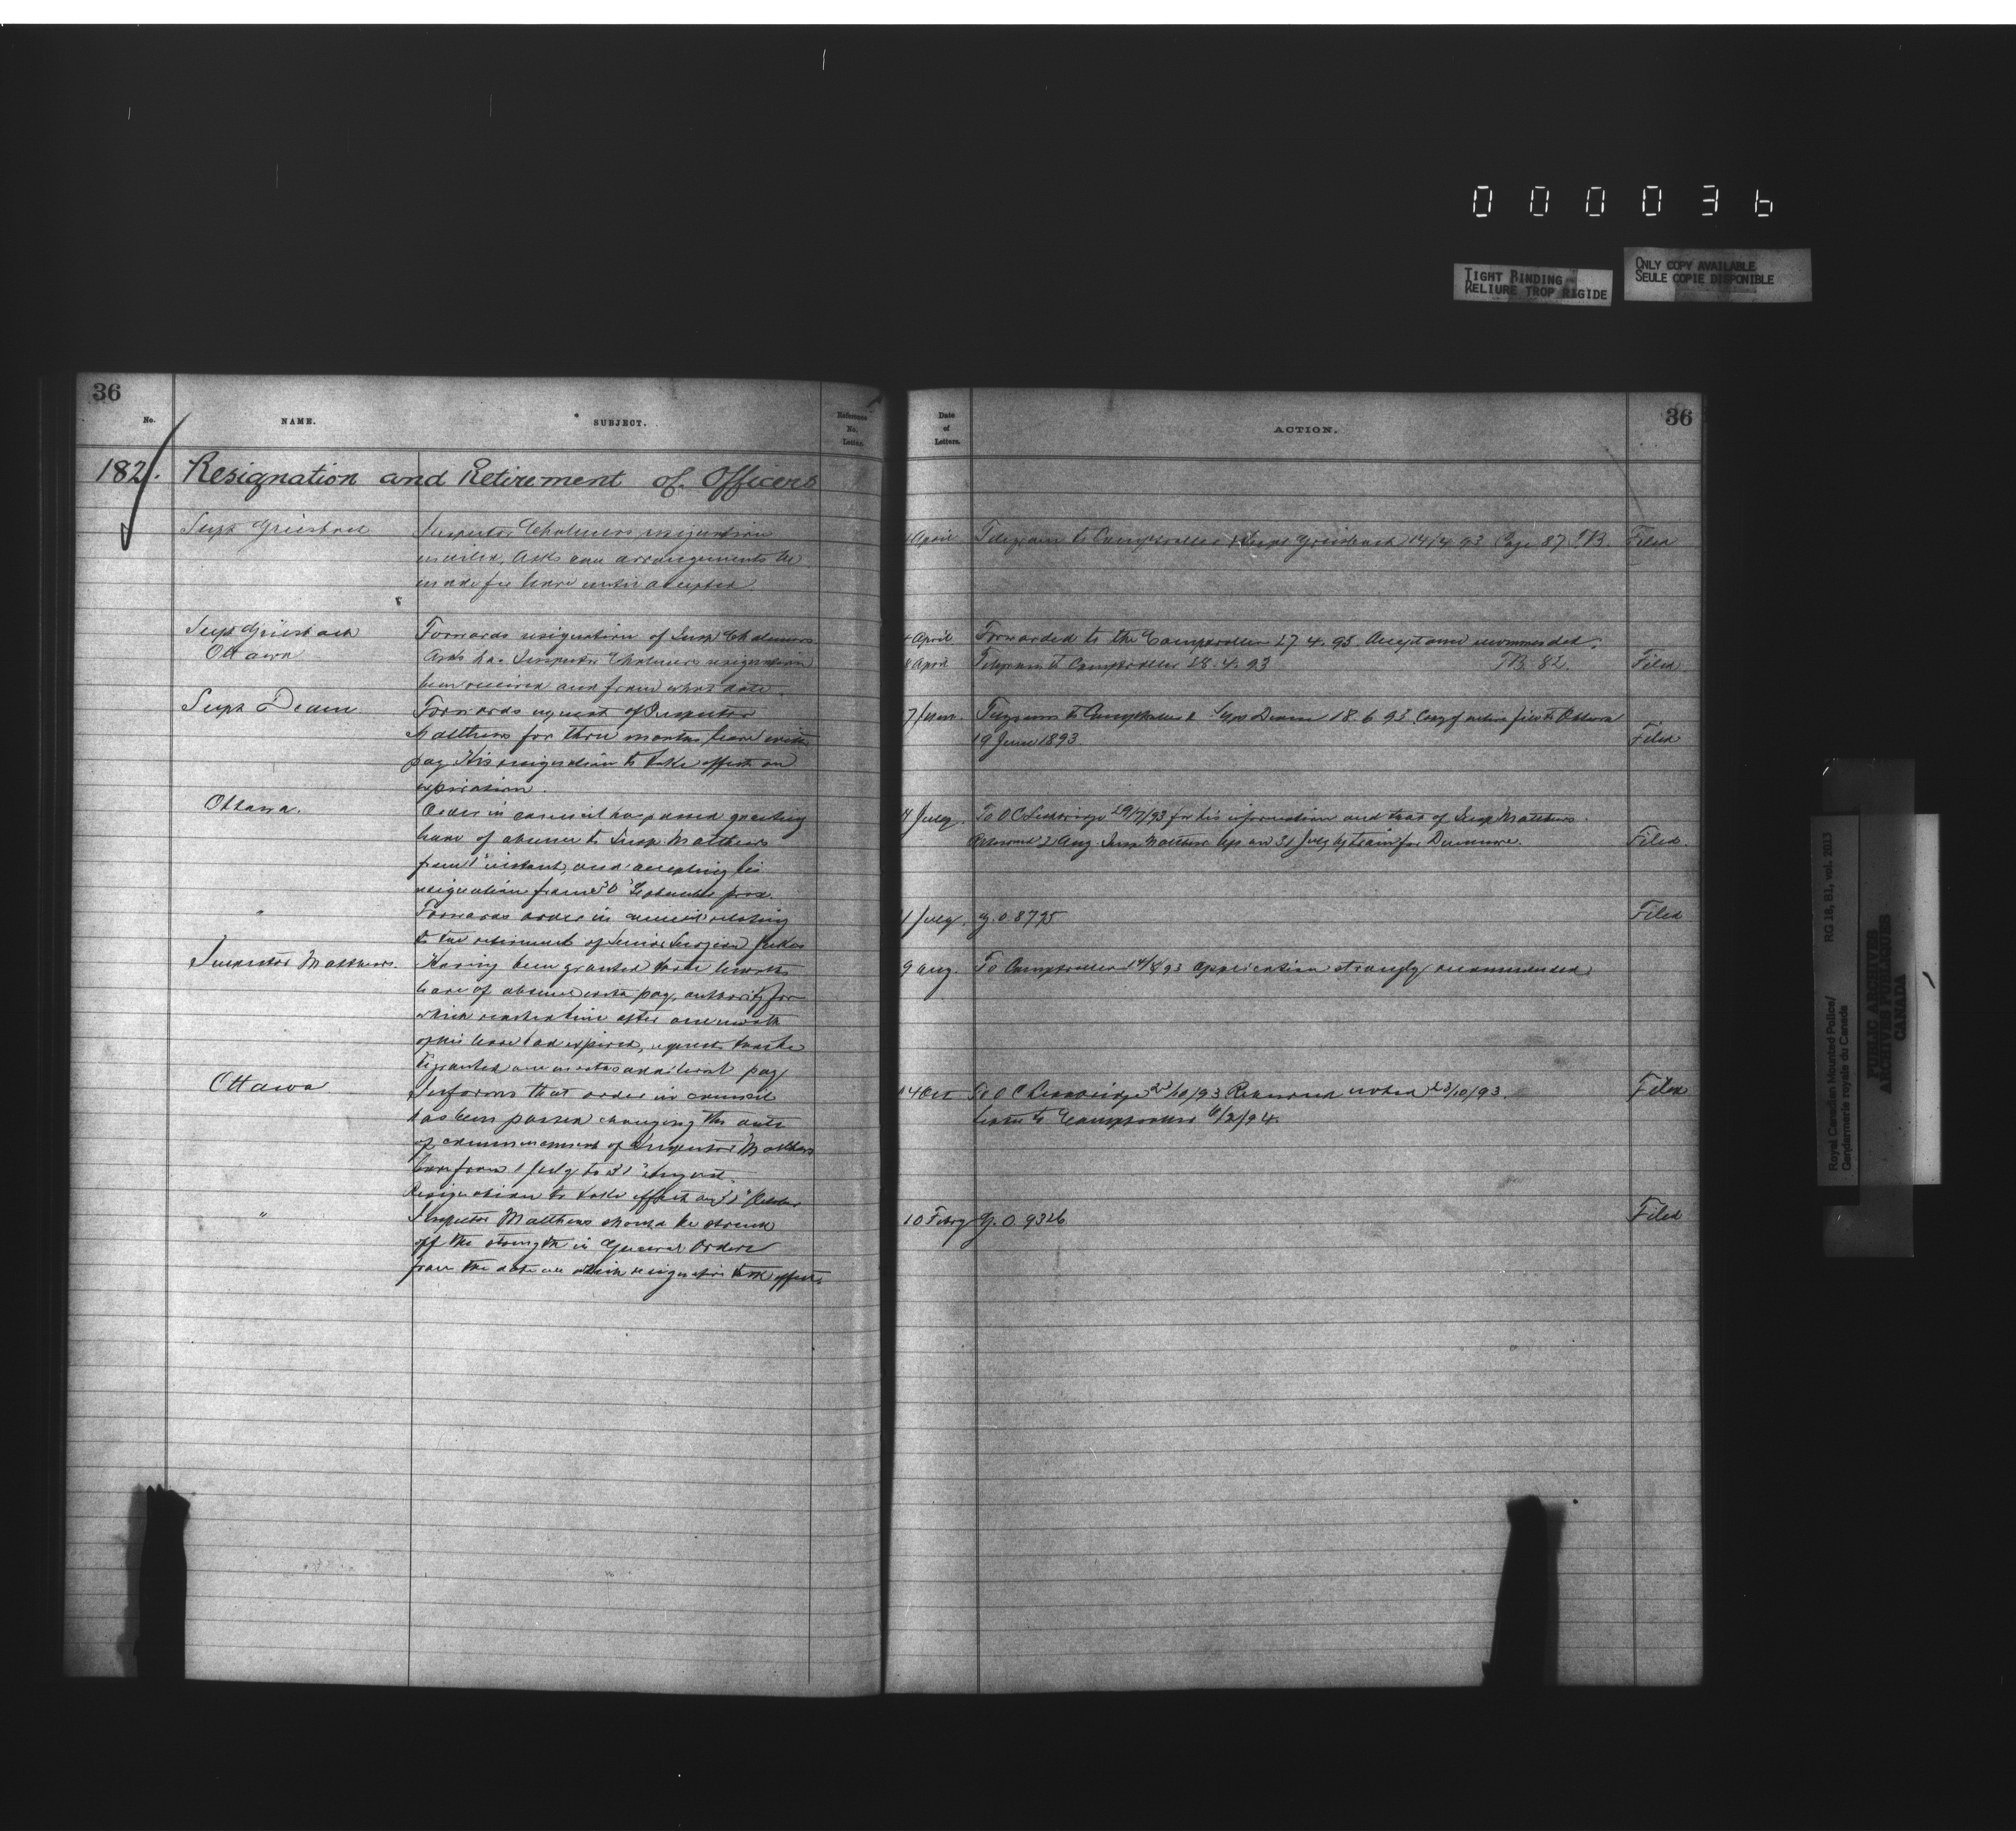 0 0 0 0 3 6
TIGHT BINDING
RELIURE TROP RIGIDE
ONLY COPY AVAILABLE
SEULE COPIE DISPONIBLE
36
No.
NAME.
SUBJECT.
Reference
No.
Letter.
182. Resignation and Retirement of Officers
Supt Griesbach
Inspector Chalmers resignation
mailed, Asks can arrangements be
made for leave until accepted
Supt Griesbach
Forwards resignation of Insp Chalmers
Ottawa
Asks has Inspector Chalmers resignation
been received and from what date.
Supt Deane
Forwards request of Inspector
Matthews for three months leave with
pay His resignation to take effect on
expiration.
Ottawa.
Order in council has passed granting
leave of absence to Insp Matthews
from 1st instant, and accepting his
resignation from 30 prox
"
Forwards order in council relating
to the retirement of Senior Surgeon Jukes
Inspector Matthews.
Having been granted three months
leave of absence with pay, authority for
which reached him after one month
of his leave had expired, requests that he
be granted one months additional pay
Ottawa
Informs that order in council
has been passed changing the date
of commencement of Inspector Matthews
leave from 1 July to 31st August.
Resignation to take effect on 31st October
"
Inspector Matthews should be struck
off the strength in General Orders
from the date on which resignation took effect.
Date
of
Letters.
ACTION.
36
April Telegram to Comptroller & Supt Griesbach 14/4 93 Page 87 TB. Filed
April Forwarded to the Comptroller 27. 4. 93 Acceptance recommended.
8 April Telegram to Comptroller 28. 4. 93 TB. 82. Filed
7 June Telegrams to Comptroller & Supt Deane 18. 6. 93 Copy of entire file to Ottawa
19 June 1893. Filed
July To O C Lethbridge 29/7/93 for his information and that of Insp Matthews.
Returned 2 Aug. Insp Matthews left on 31 July by train for Dunmore. Filed.
1 July. G. O. 8795 Filed
9 Aug. To Comptroller 14/8/93 application strongly recommended
14 Oct To O C Lethbridge 23/10/93 Returned noted 23/10/93. Filed
to Comptroller 6/2/94.
10 Febry G. O 9326 Filed
Royal Canadian Mounted Police/
Gendarmerie royale du Canada
RG 18, B1, vol. 2013
PUBLIC ARCHIVES
ARCHIVES PUBLIQUES
CANADA